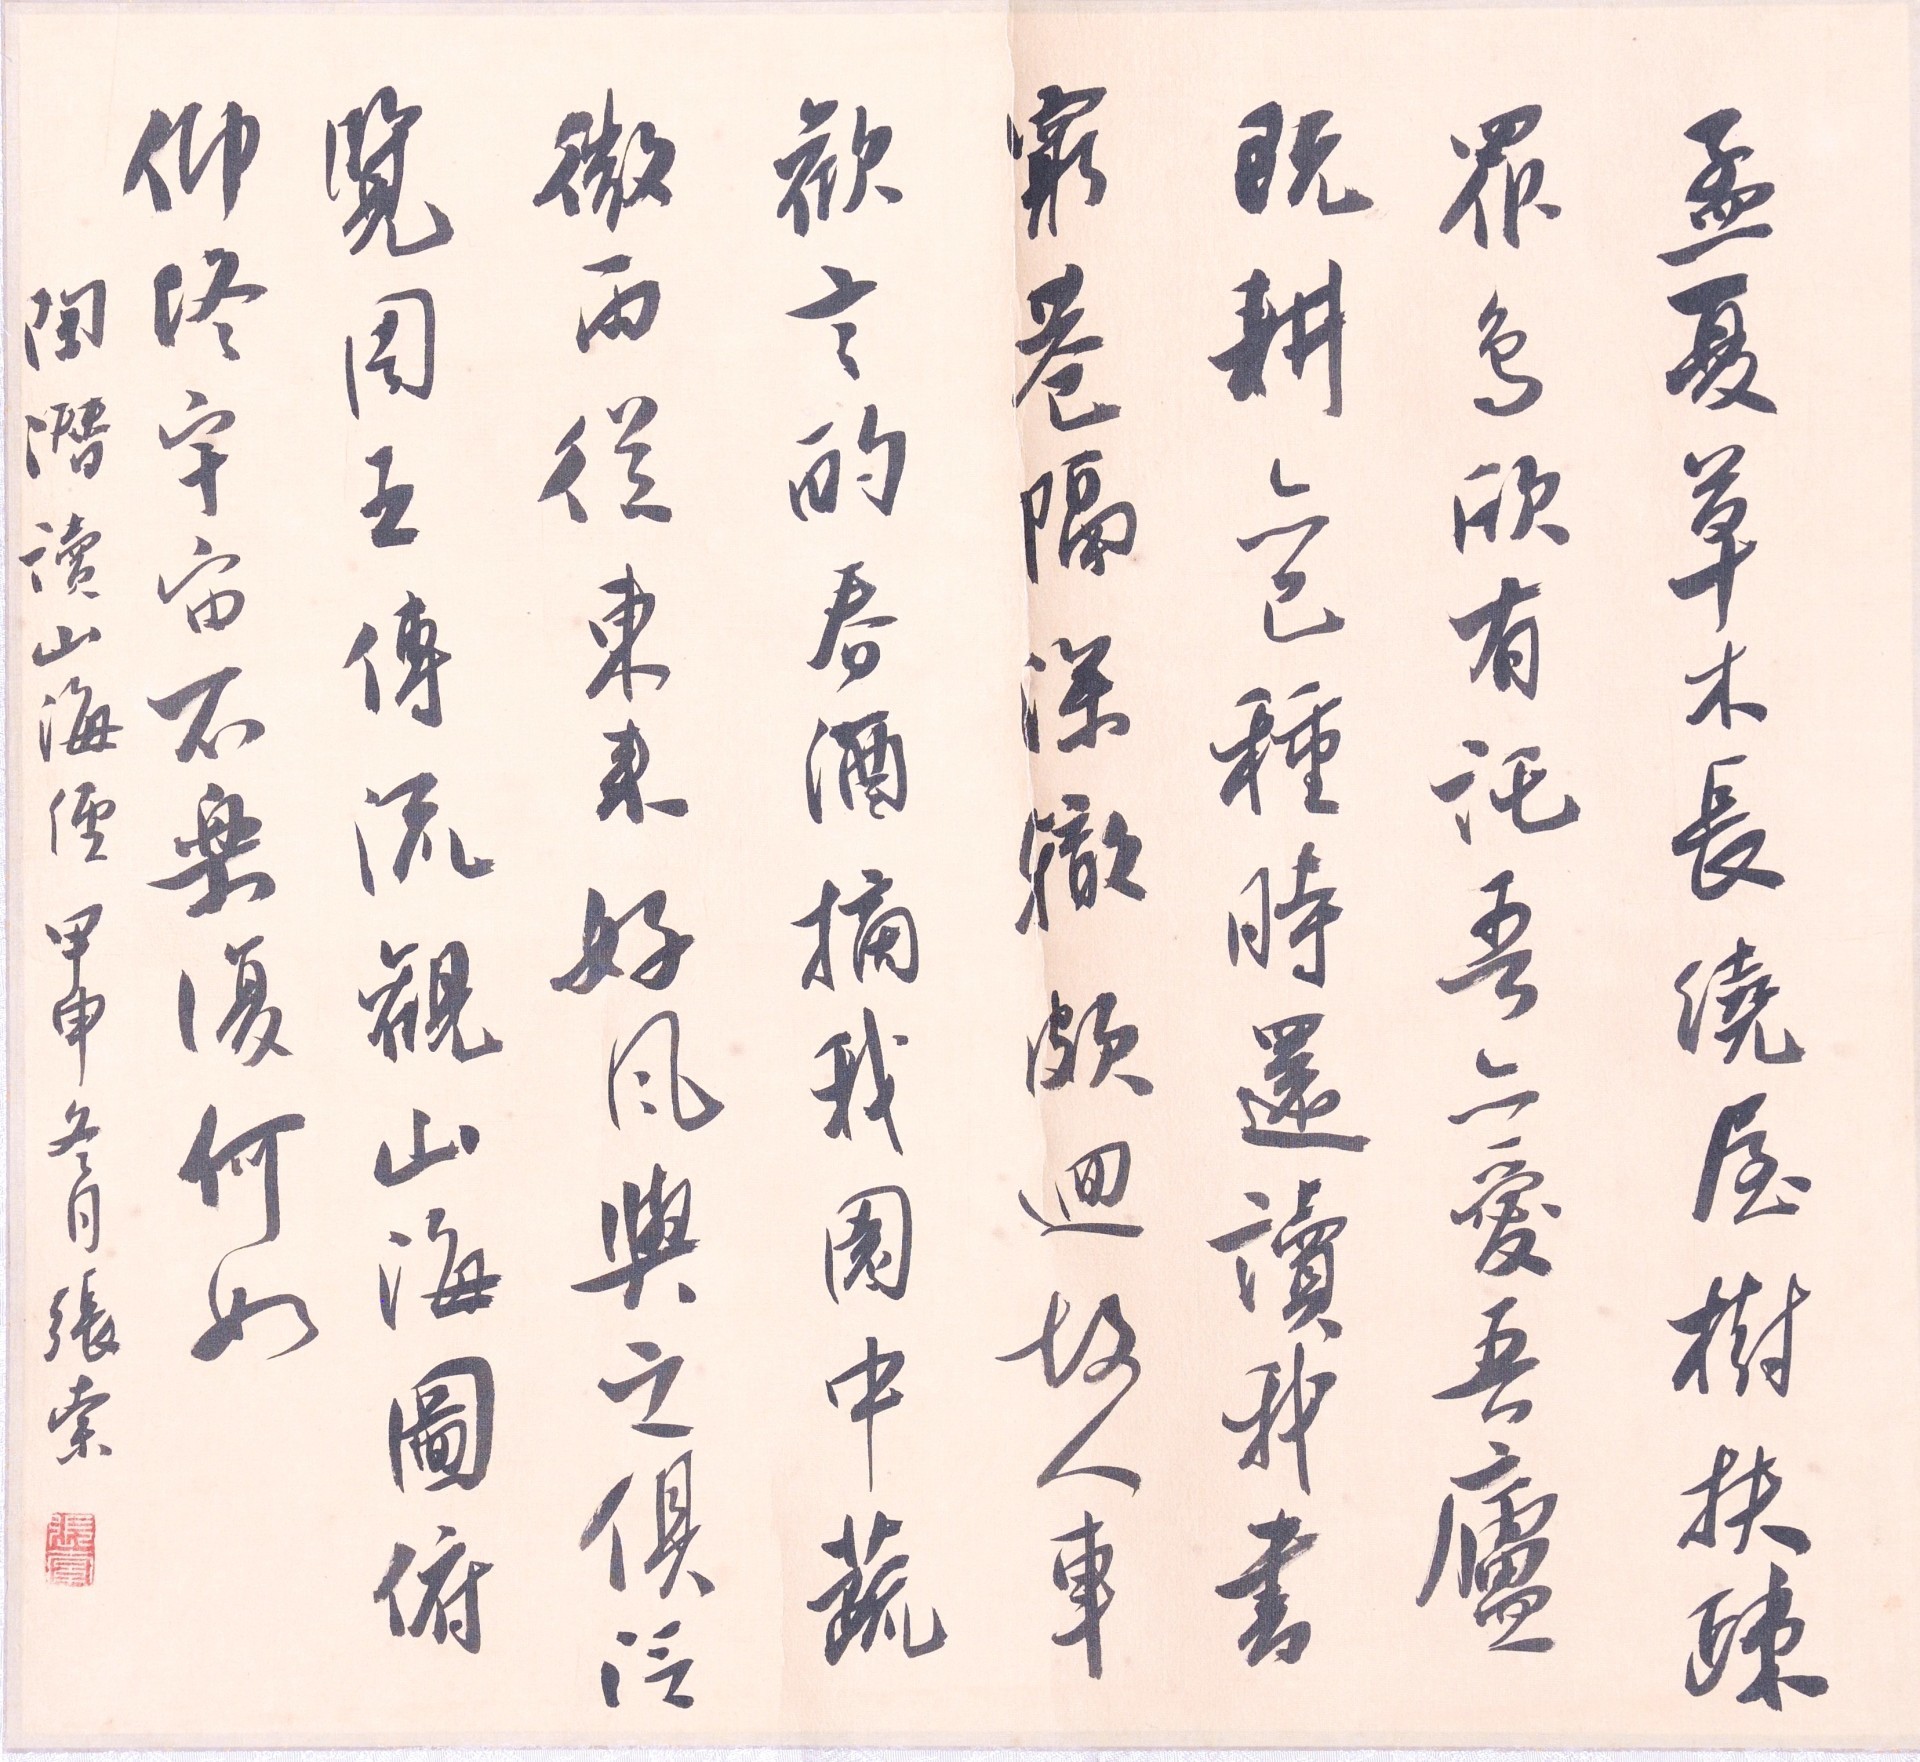 孟夏草木長繞屋樹扶疎
眾鳥欣有託吾亦愛吾廬
既耕亦已種時還讀我書
窮巷隔深轍頗迴故人車
歡言酌春酒摘我園中蔬
微雨從東来好風與之俱泛
覽周王傳流觀山海圖俯
仰終宇宙不樂復何如
陶潛讀山海經 甲申冬月 張索